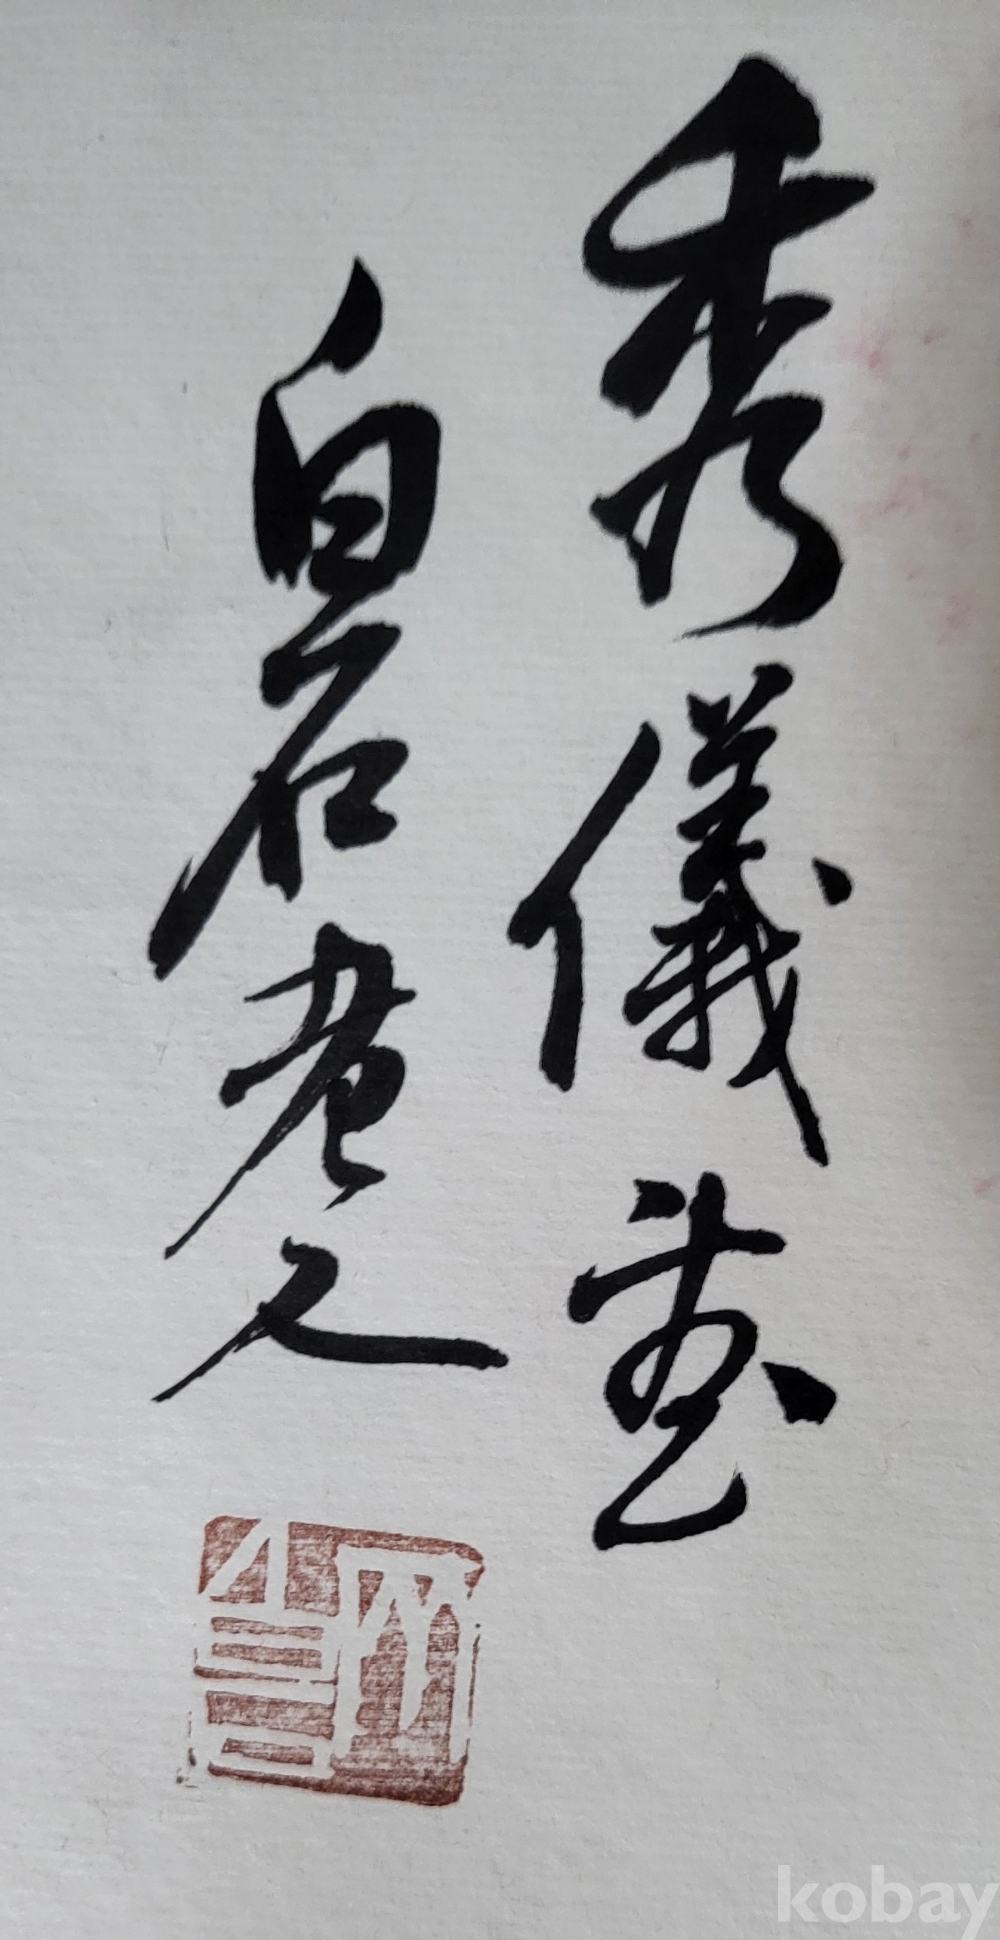 秀儀
白石老人
kobay